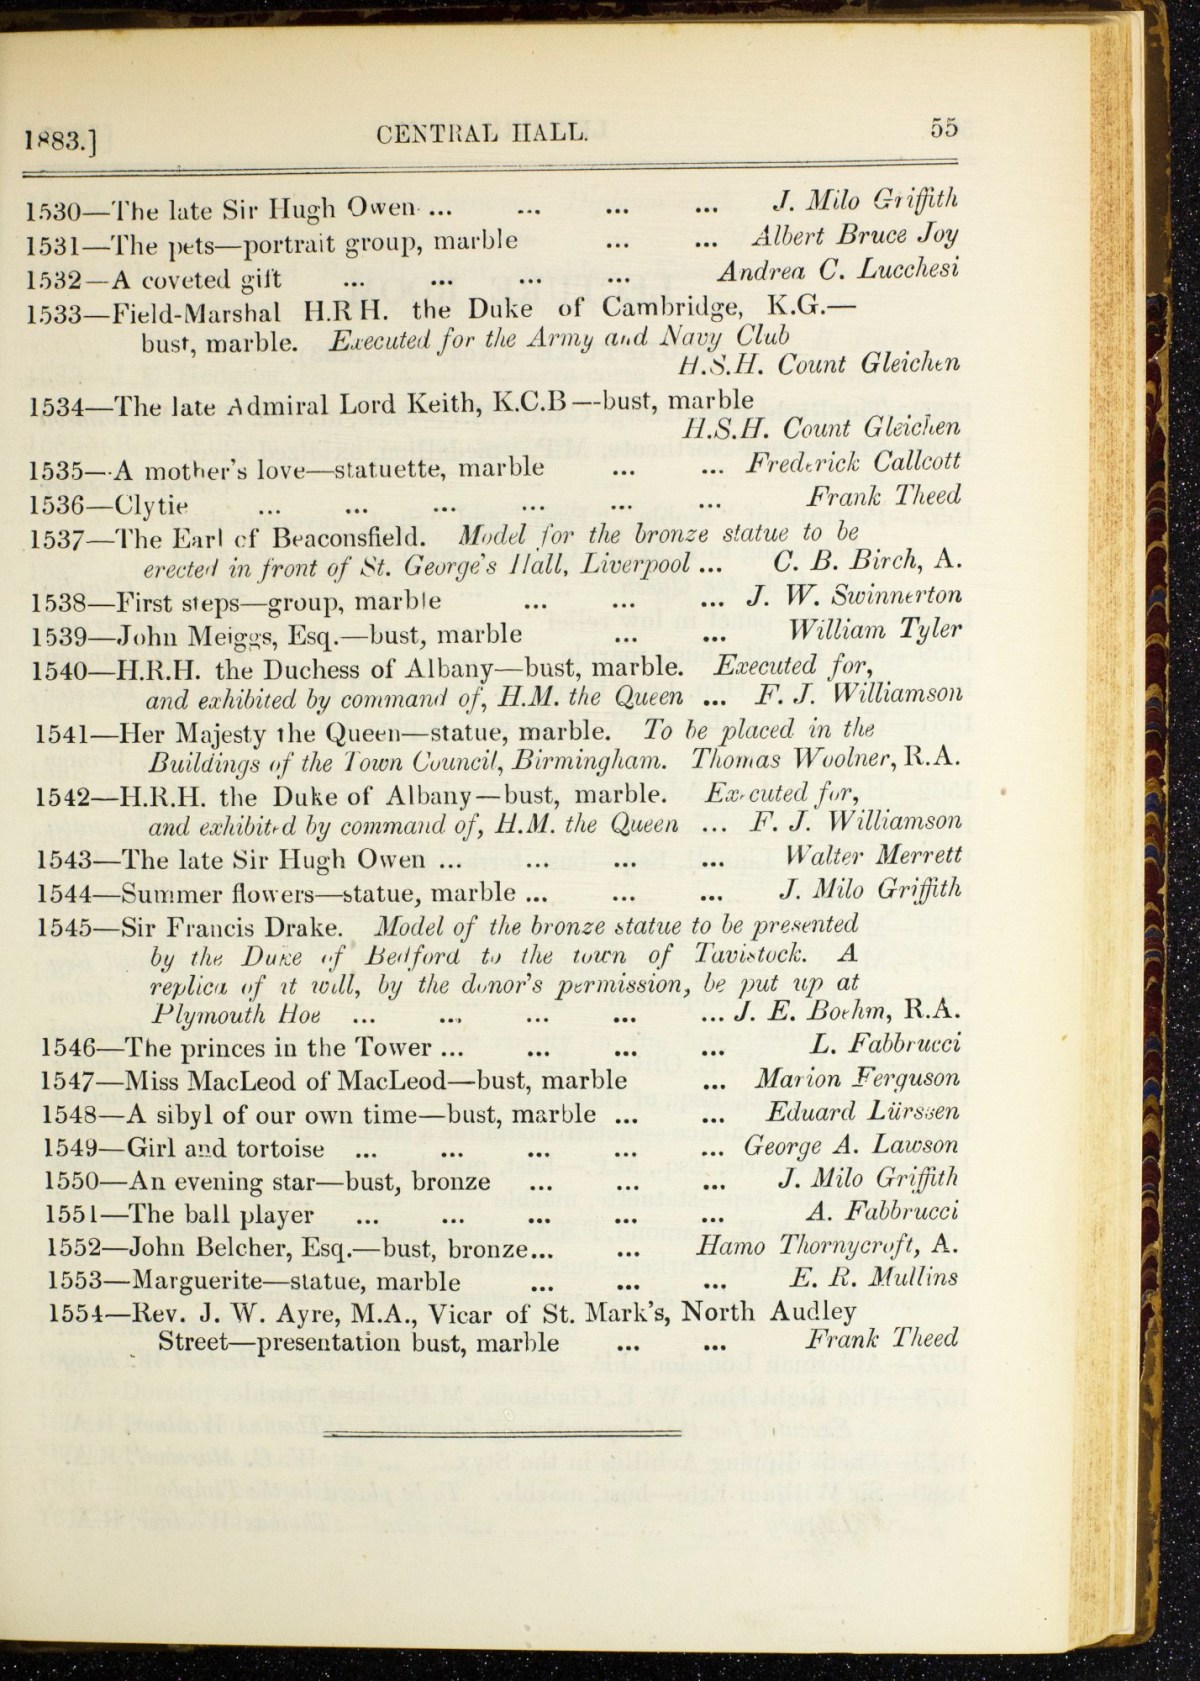 1883.] CENTRAL HALL. 55
1530—The late Sir Hugh Owen ... ... ... ... J. Milo Griffith
1531—The pets—portrait group, marble ... ... Albert Bruce Joy
1532—A coveted gift ... ... ... ... Andrea C. Lucchesi
1533—Field-Marshal H.R.H. the Duke of Cambridge, K.G.—
bust, marble. Executed for the Army and Navy Club
H.S.H. Count Gleichen
1534—The late Admiral Lord Keith, K.C.B—bust, marble
H.S.H. Count Gleichen
1535—A mother's love—statuette, marble ... ... Frederick Callcott
1536—Clytie ... ... ... ... ... ... Frank Theed
1537—The Earl of Beaconsfield. Model for the bronze statue to be
erected in front of St. George's Hall, Liverpool ... C. B. Birch, A.
1538—First steps—group, marble ... ... ... J. W. Swinnerton
1539—John Meiggs, Esq.—bust, marble ... ... William Tyler
1540—H.R.H. the Duchess of Albany—bust, marble. Executed for,
and exhibited by command of, H.M. the Queen ... F. J. Williamson
1541—Her Majesty the Queen—statue, marble. To be placed in the
Buildings of the Town Council, Birmingham. Thomas Woolner, R.A.
1542—H.R.H. the Duke of Albany—bust, marble. Executed for,
and exhibited by command of, H.M. the Queen ... F. J. Williamson
1543—The late Sir Hugh Owen ... ... ... ... Walter Merrett
1544—Summer flowers—statue, marble ... ... ... J. Milo Griffith
1545—Sir Francis Drake. Model of the bronze statue to be presented
by the Duke of Bedford to the town of Tavistock. A
replica of it will, by the donor's permission, be put up at
Plymouth Hoe ... ... ... ... ... J. E. Boehm, R.A.
1546—The princes in the Tower ... ... ... ... L. Fabbrucci
1547—Miss MacLeod of MacLeod—bust, marble ... Marion Ferguson
1548—A sibyl of our own time—bust, marble ... ... Eduard Lürssen
1549—Girl and tortoise ... ... ... ... ... George A. Lawson
1550—An evening star—bust, bronze ... ... ... J. Milo Griffith
1551—The ball player ... ... ... ... ... A. Fabbrucci
1552—John Belcher, Esq.—bust, bronze... ... Hamo Thornycroft, A.
1553—Marguerite—statue, marble ... ... ... E. R. Mullins
1554—Rev. J. W. Ayre, M.A., Vicar of St. Mark's, North Audley
Street—presentation bust, marble ... ... Frank Theed